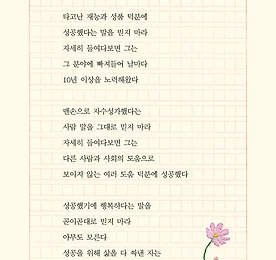 타고난 재능과 성품 덕분에
성공했다는 말을 믿지 마라
자세히 들여다보면 그는
그 분야에 빠져들어 날마다
10년 이상을 노력해왔다
맨손으로 자수성가했다는
사람 말을 그대로 믿지 마라
자세히 들여다보면 그는
다른 사람과 사회의 도움으로
보이지 않는 여러 도움 덕분에 성공했다
성공했기에 행복하다는 말을
곧이곧대로 믿지 마라
아무도 모른다
성공을 위해 삶을 다 짜낸 자는